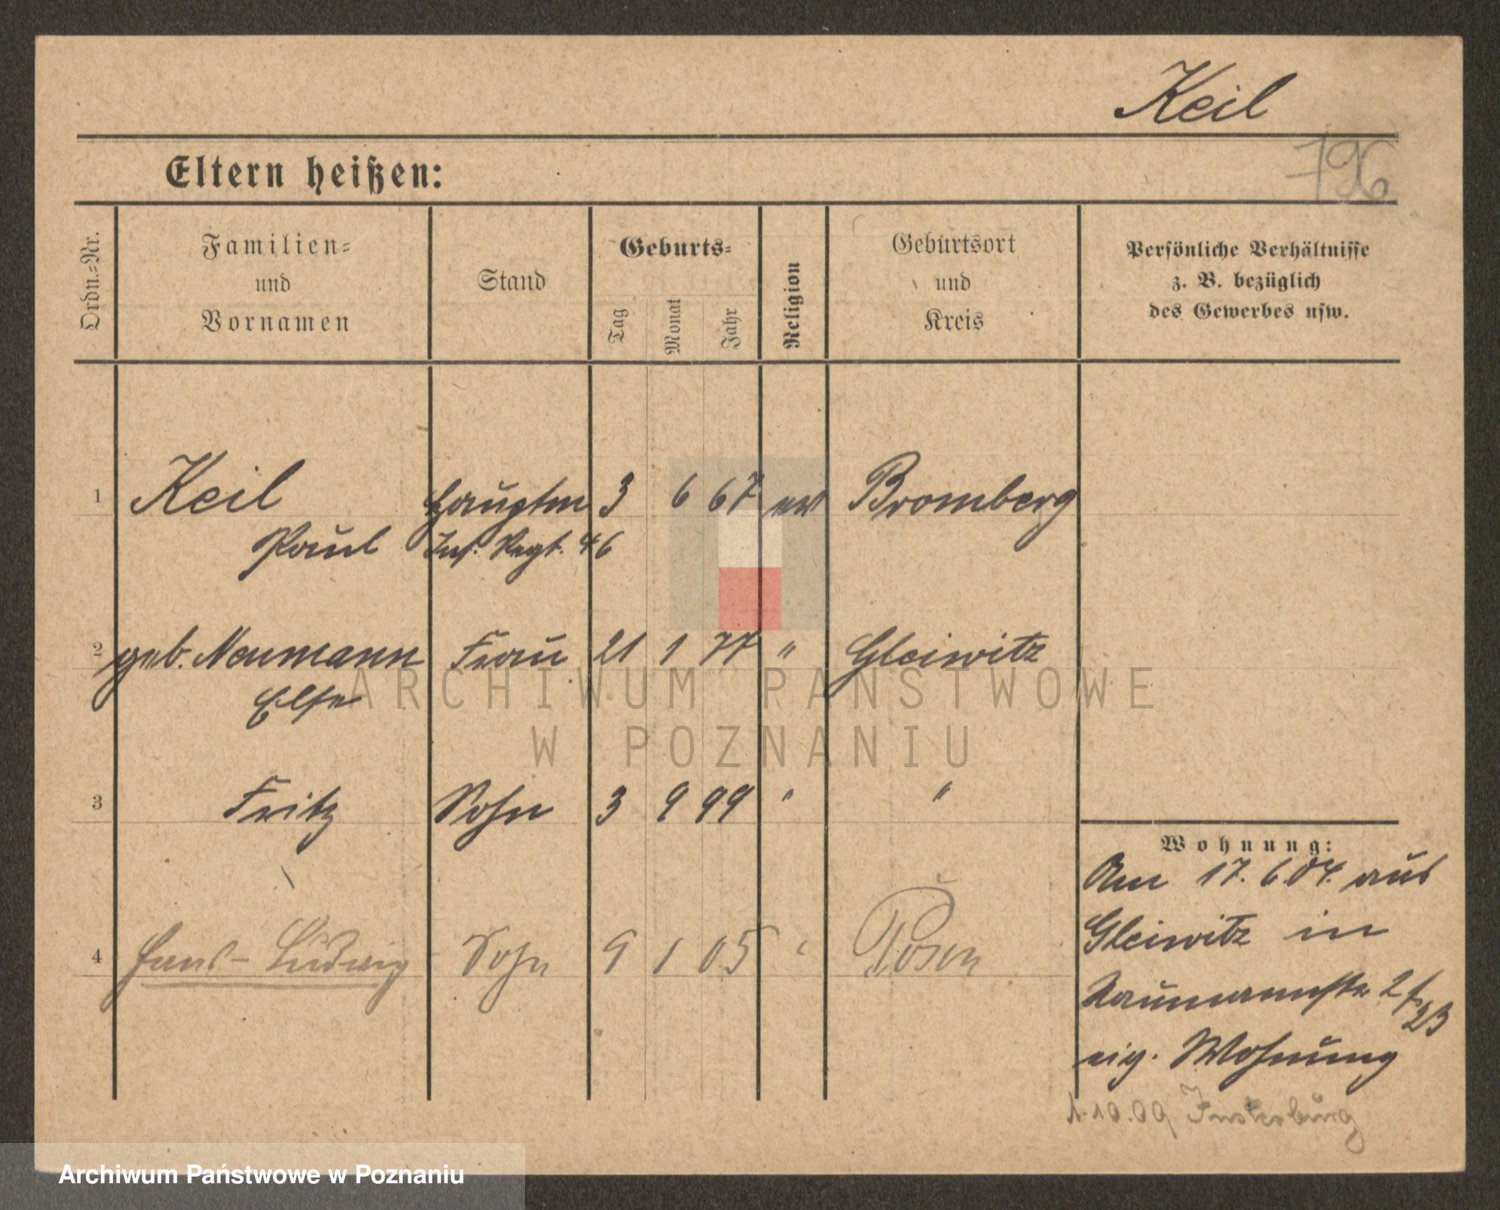 Keil
Eltern heißen:
796
Ordn.=Nr.
Familien=
und
Vornamen
Stand
Geburts=
Tag
Monat
Jahr
Religion
Geburtsort
und
Kreis
Persönliche Verhältnisse
z. B. bezüglich
des Gewerbes usw.
1 Keil Hauptm 3 6 67 ev Bromberg
Paul Inf. Regt. 46
2 geb. Neumann Frau 21 1 77 " Gleiwitz
Else
3 Fritz Sohn 3 9 99 " "
4 Hans-Ludwig Sohn 9 1 05 " Posen
Wohnung:
Am 17.6.04. aus
Gleiwitz in
Naumannstr 2
23
eig. Wohnung
1.10.09 Insterburg
ARCHIWUM PAŃSTWOWE
W POZNANIU
Archiwum Państwowe w Poznaniu